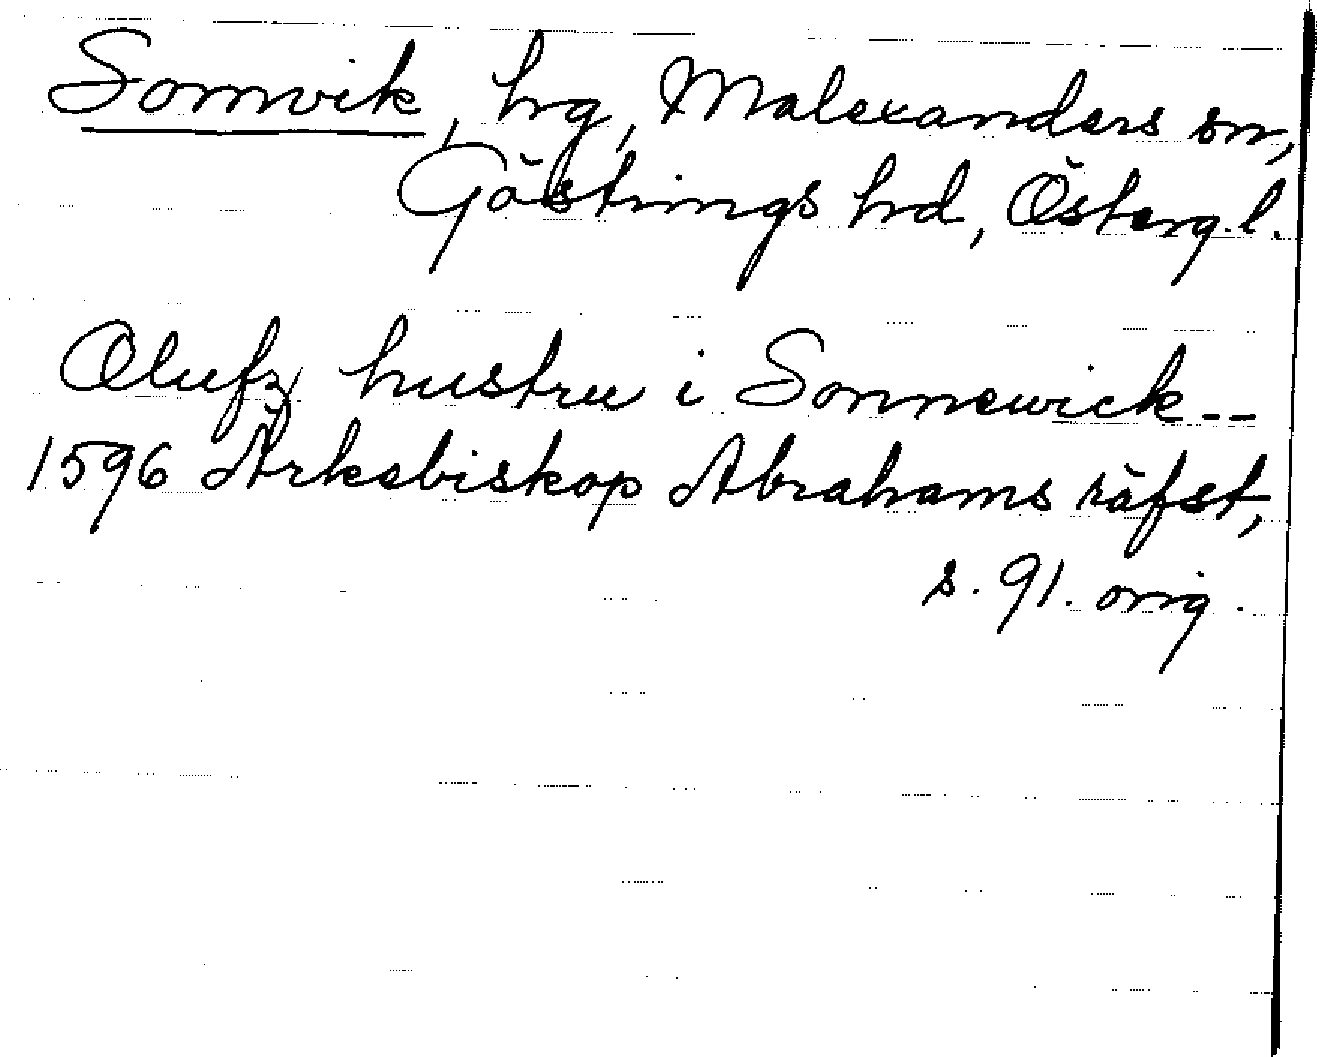 Somvik, hrg, Malexanders sn,
Göstrings hrd, Österg. l.
Olufz hustru i Sonnewick--
1596 Ärkebiskop Abrahams räfst,
s. 91. orig.